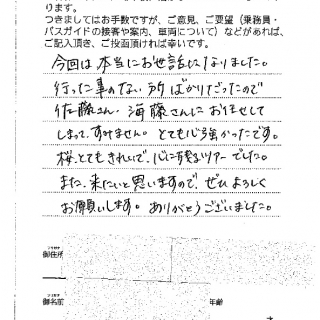 ります。
つきましてはお手数ですが、ご意見、ご要望（乗務員・
バスガイドの接客や案内、車両について）などがあれば、
ご記入頂き、ご投函頂ければ幸いです。
今回は本当にお世話になりました。
行った事のない所ばかりだったので
佐藤さん、海藤さんにお任せして
しまって、すみません。とても心強かったです。
桜、とてもきれいで、心に残るツアーでした。
また、来たいと思いますので、ぜひよろしく
お願いします。ありがとうございました。
フリガナ
御住所
フリガナ
御名前
年齢